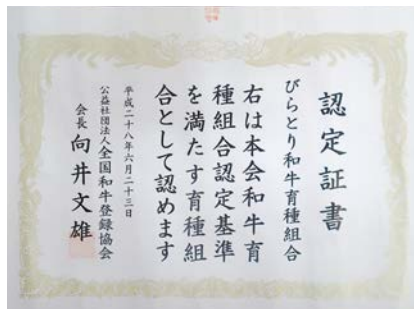 認定証書
びらとり和牛育種組合
右は本会和牛育
種組合認定基準
を満たす育種組
合として認めます
平成二十八年六月二十三日
公益社団法人全国和牛登録協会
会長 向井文雄